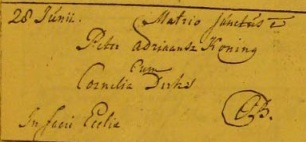 28 Junii. Matrio junctus e
Petr Adriaansz Koning
Cum
Cornelia Dirks
In facie Ecclia